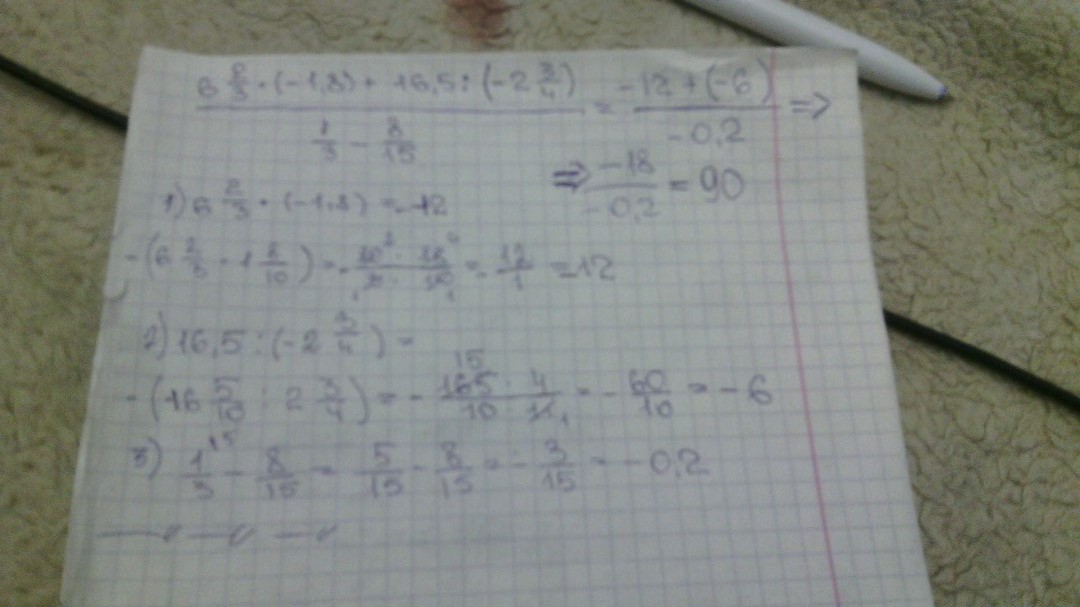 6 2/3 · (-1,8) + 16,5 : (-2 3/4) / 1/3 - 8/15 = -12 + (-6) / -0,2 ⇒
⇒ -18 / -0,2 = 90
1) 6 2/3 · (-1,8) = -12
-(6 2/3 · 1 8/10) = - 20 · 18 / 3 · 10 = - 12/1 = -12
2) 16,5 : (-2 3/4) =
-(16 5/10 : 2 3/4) = - 165 · 4 / 10 · 11 = - 60/10 = -6
3) 1/3 - 8/15 = 5/15 - 8/15 = - 3/15 = -0,2